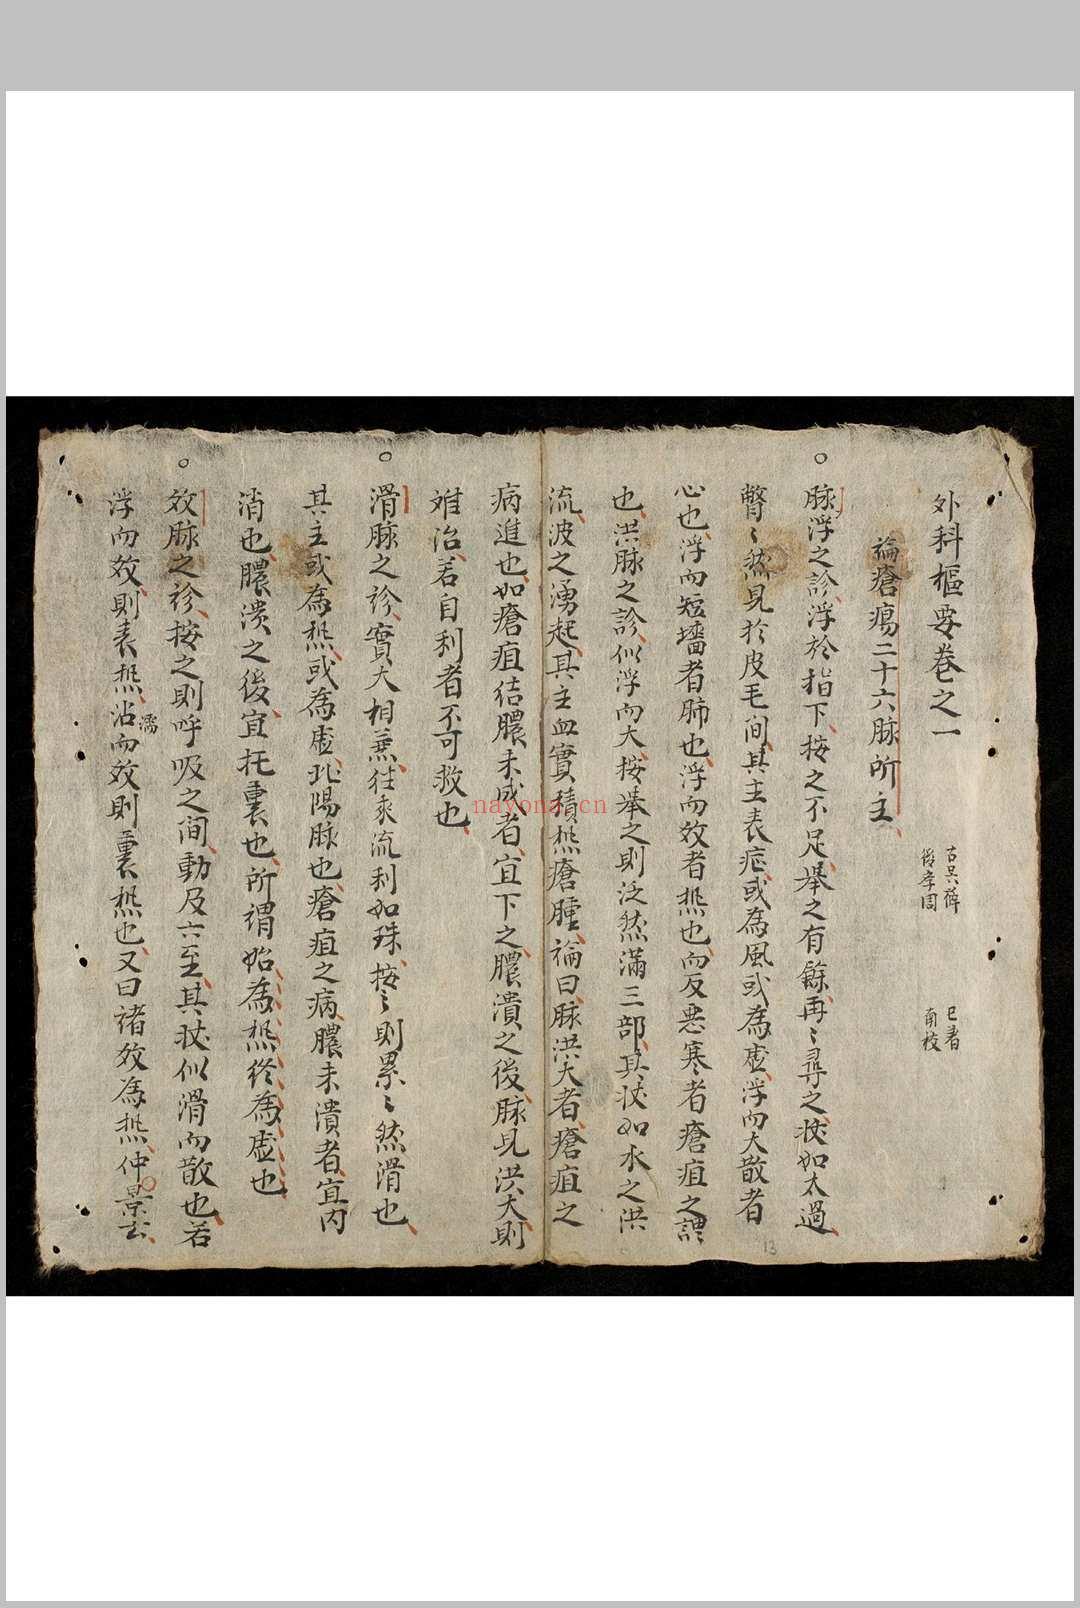 外科樞要卷之一
古吳薛
巳著
南枝
論瘡瘍二十六脉所主
脉浮之診浮於指下按之不足舉之有餘再〻尋之狀如太過
瞥〻然見於皮毛間其主表症或為風或為虚浮而大散者
心也浮而短墻者肺也浮而效者㷍也而反悪寒者瘡疽之謂
也洪脉之診似浮而大按舉之則泛然滿三部其狀如水之洪
流波之湧起其主血實積㷍瘡腫論曰脉洪大者瘡疽之
病進也如瘡疽结膿未成者宜下之膿潰之後脉見洪大則
难治若自利者不可救也
滑脉之診實大相兼往来流利如珠按〻則累〻然滑也
其主或為㷍或為虚此陽脉也瘡疽之病膿未潰者宜内
消也膿潰之後宜托裏也所謂始為㷍终為虚也
效脉之診按之則呼吸之间動及六至其狀似滑而散也若
浮而效則表㷍沾而效則裏㷍也又曰诸效為㷍仲景云
濡
nayona.cn
13